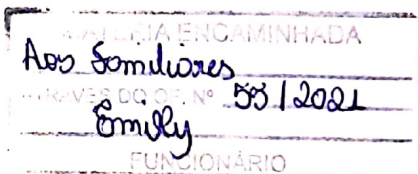 MATÉRIA ENCAMINHADA
Aos familiares
ATRAVÉS DO OF. Nº 55/2021
Emilly
FUNCIONÁRIO